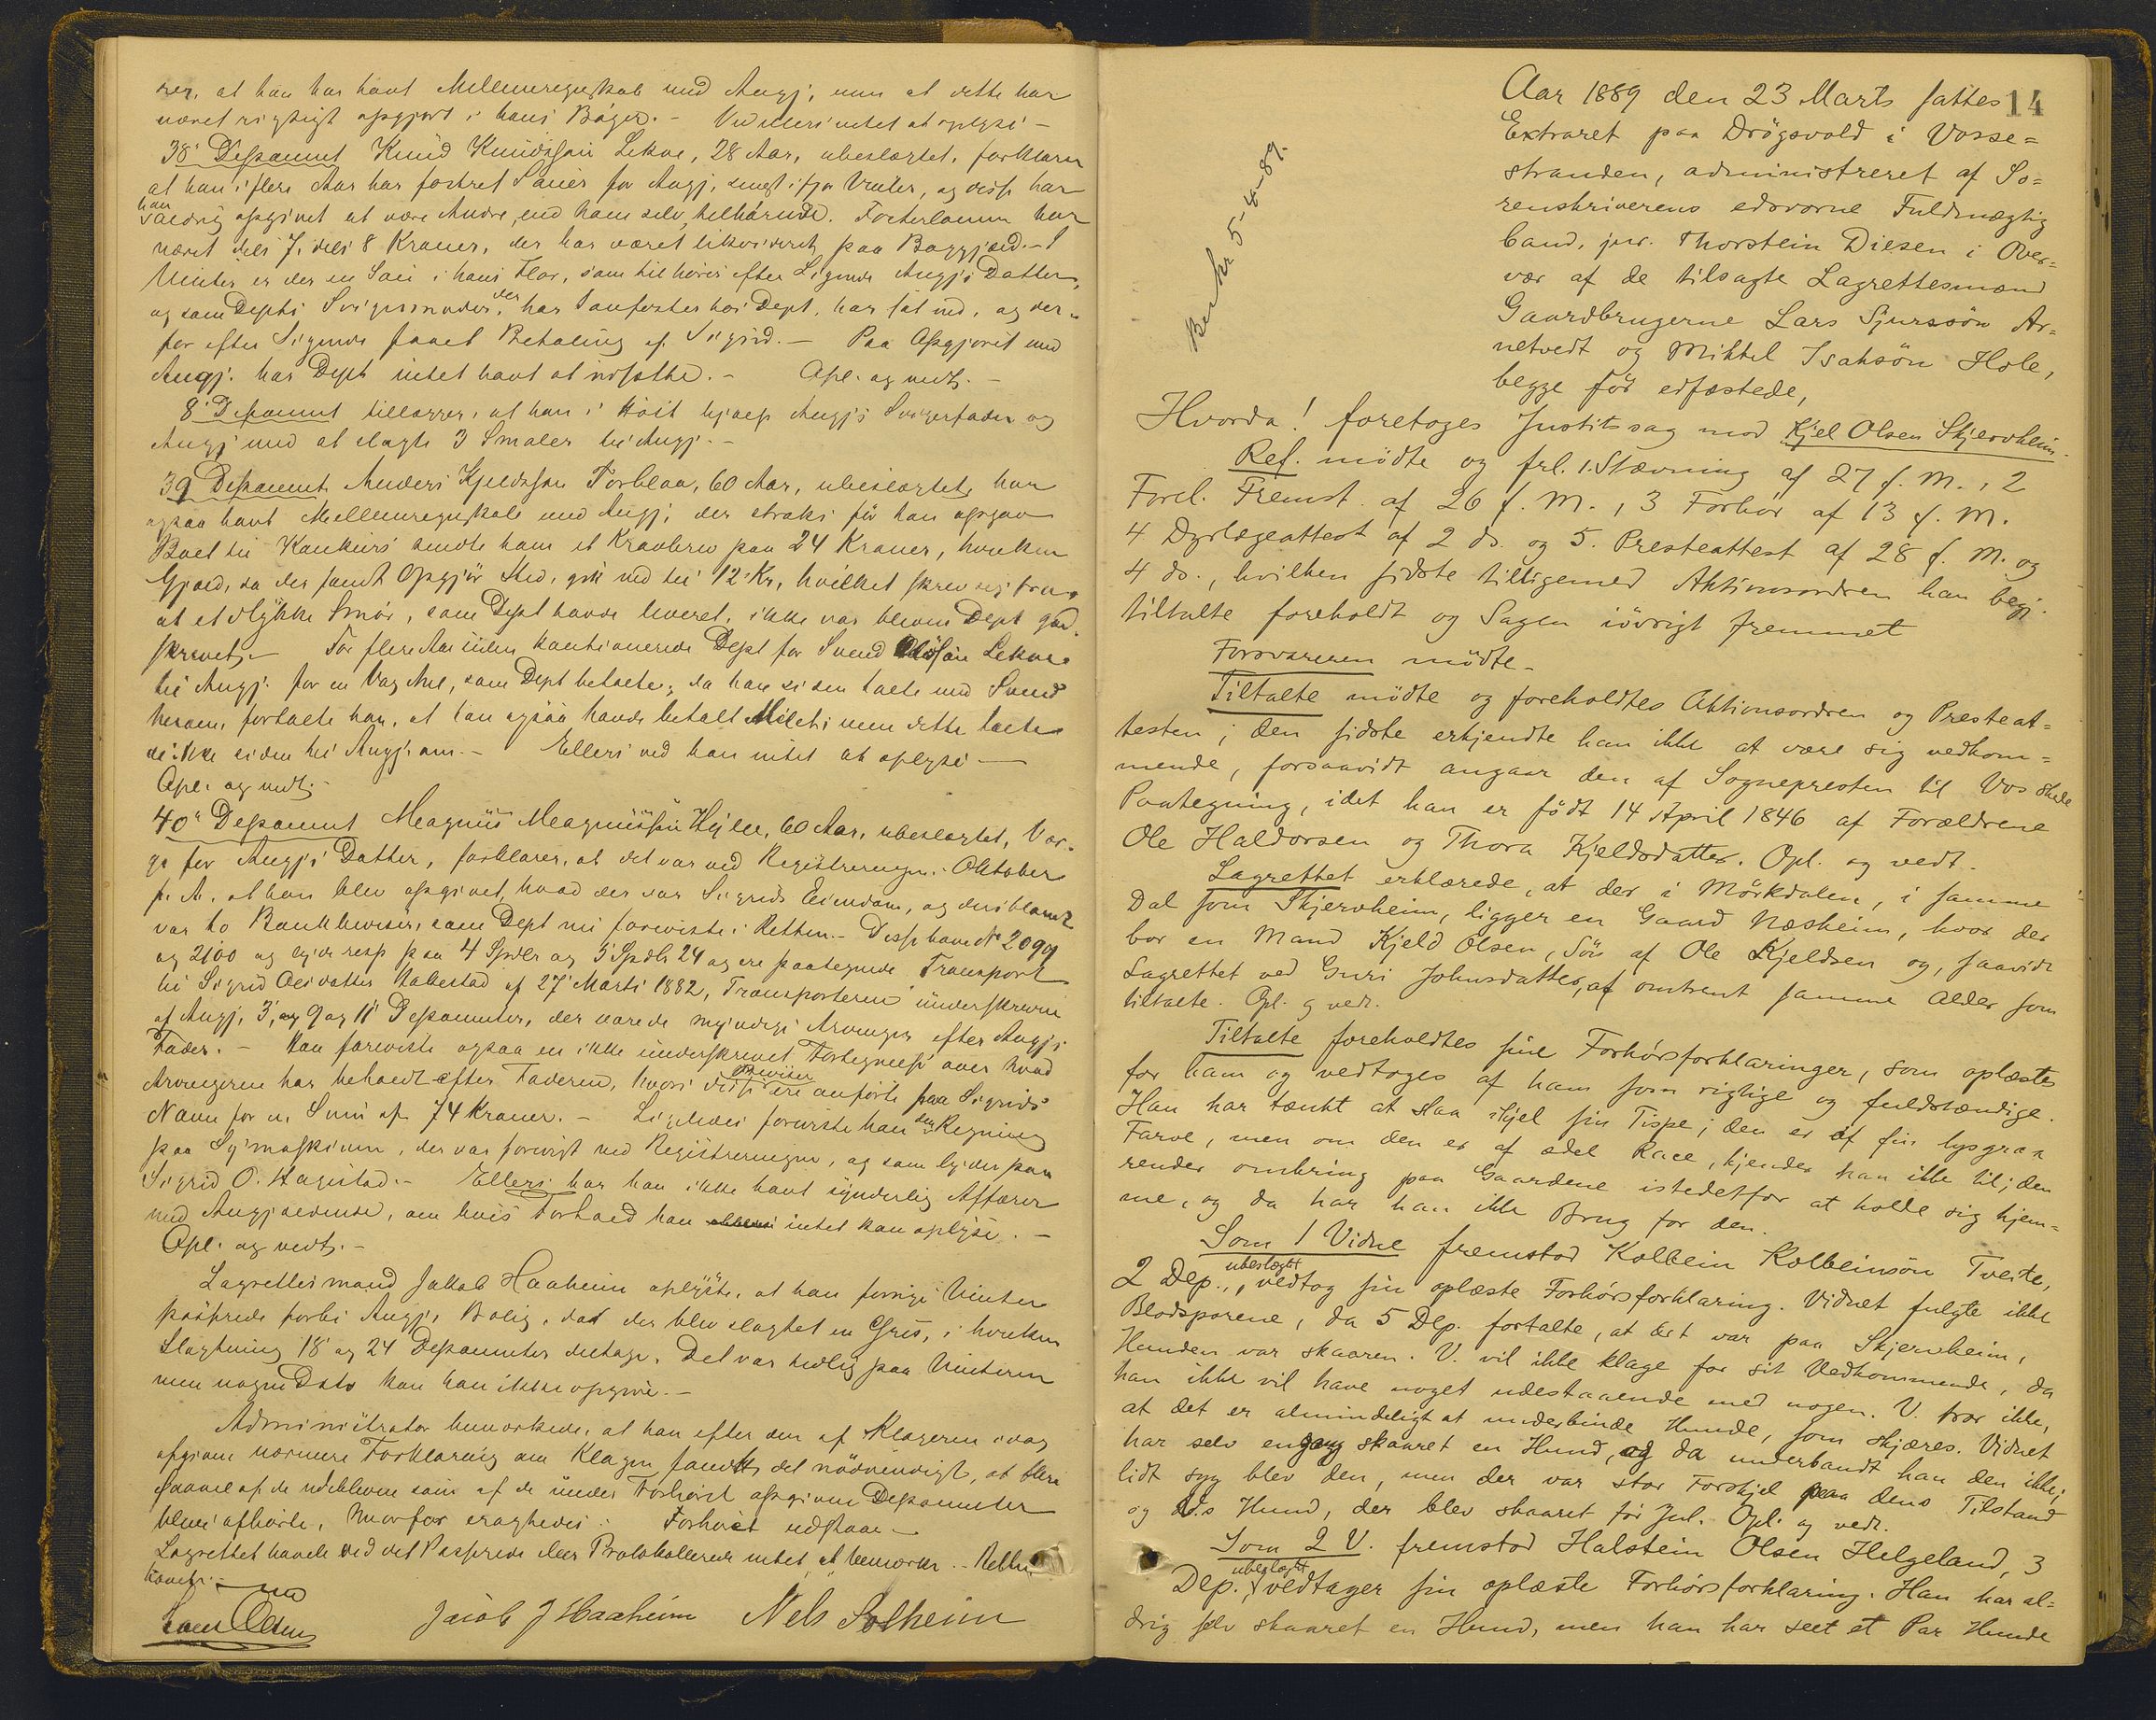 rer, at han har havt Mellemregnskab med Angj., men at dette har
været rigtigt opgjort i hans Bøger. - Ved ellers intet at oplyse -
38' Deponent Knud Knudssøn Lekve, 28 Aar, ubeslægtet, forklarer
at han i flere Aar har fostret Sauer for Angj., senest ifjor Vinter, og disse har
han
aldrig opgivet at være Andre, end ham selv, tilhørende. Fosterlønnen har
været dels 7, dels 8 Kroner, der har været likvideret paa Byggjæld. - I
Vinter er der en Sau i hans Flor, som tilhører efter Sigende Angj's Datter,
og som Depts Svigermoder, der har Sauefoster hos Dept, har sat ind, og der-
for efter Sigende faaet Betaling af Sigrid. - Paa Opgjøret med
Angj. har Dept intet havt at udsætte. - Opl. og vedt. -
8' Deponent tillægger, at han i Høst hjalp Angj's Svigerfader og
Angj med at slagte 3 Smaler hos Angj. -
39 Deponent Anders Kjeldssøn Tørblaa, 60 Aar, ubeslægtet, har
ogsaa havt Mellemregnskab med Angj., der straks før han opgav
Boet til Konkurs sendte ham et Kravbrev paa 24 Kroner, hvilken
Gjæld, da der fandt Opgjør Sted, gik ned til 12 Kr, hvilket skrev sig fra,
at et Stykke Smør, som Dept havde leveret, ikke var bleven Dept god-
skrevet. - For flere Aar siden kautionerede Dept for Svend Olssøn Lekve
til Angj. for en Vog Mel, som Dept betalte; da han siden talte med Svend
herom, fortalte han, at han ogsaa havde betalt Melet; men dette talte
de ikke siden til Angj. om. - Ellers ved han intet at oplyse -
Opl. og vedt. -
40' Deponent Magnus Magnussøn Hylle, 60 Aar, ubeslægtet, Vær-
ge for Angj's Datter, forklarer, at det var ved Registreringen i Oktober
f. A. at han blev opgivet, hvad der var Sigrids Eiendom, og deriblandt
var to Bankbeviser, som Dept nu foreviste i Retten. - Disse have No 2099
og 2100 og lyde resp paa 4 Spdlr og 5 Spdlr 24 og ere paategnede Transport
til Sigrid Olsdatter Hakestad af 27 Marts 1882, Transporterne underskrevne
af Angj, 3', og 9 og 11' Deponenter, der vare de myndige Arvinger efter Angj's
Fader. - Han foreviste ogsaa en ikke underskrevet Fortegnelse over hvad
Arvingerne har beholdt efter Faderen, hvori disse Beviser ere anførte paa Sigrids
Navn for en Sum af 74 Kroner. - Ligeledes foreviste han den Regning
paa Symaskinen, der var forevist ved Registreringen, og som lyder paa
Sigrid O. Hagestad. - Ellers har han ikke havt synderlig Affærer
med Angjældende, om hvis Forhold han intet kan oplyse. -
Opl. og vedt. -
Lagrettesmand Jakob Haaheim oplyste, at han forrige Vinter
passerede forbi Angj's Bolig, da der blev slagtet en Gris, i hvilken
Slagtning 18' og 24 Deponenter deltog. Det var tidlig paa Vinteren
men nogen Dato kan han ikke opgive. -
Administrator bemærkede, at han efter den af Klageren idag
afgivne nærmere Forklaring om Klagen fandt det nødvendigt, at flere
saavel af de udeblevne som af de under Forhøret opgivne Deponenter
bleve afhørte, hvorfor eragtedes: Forhøret udstaar -
Lagrettet havde ved det Passerede eller Protokollerede intet at bemærke. - Retten
hævet. -
Jacob J Haaheim Nels Solheim
14
Aar 1889 den 23 Marts sattes
Extraret paa Drögsvold i Vosse=
stranden, administreret af So=
renskriverens edsvorne Fuldmægtig
cand. jur. Thorstein Diesen i Over=
vær af de tilsagte Lagrettesmænd
Gaardbrugerne Lars Sjurssön Ar=
netvedt og Mikkel Isaksön Hole,
begge för edfæstede,
Hvorda! foretoges Justitssag mod Kjel Olsen Skjervheim.
Ref. mödte og frl. 1. Stævning af 27 f. M., 2
Forel. Fremst. af 26 f. M., 3 Forhör af 13 f. M.
4 Dyrlægeattest af 2 ds. og 5. Presteattest af 28 f. M. og
4 ds., hvilken sidste tilligemed Aktionsordren han begj.
tiltalte foreholdt og Sagen iövrigt fremmet
Forsvareren mödte -
Tiltalte mödte og foreholdtes Aktionsordren og Presteat=
testen; den sidste erkjendte han ikke at være sig vedkom=
mende, forsaavidt angaar den af Sognepresten til Vos skede
Paategning, idet han er födt 14 April 1846 af Forældrene
Ole Haldorsen og Thora Kjeldsdatter. Opl. og vedt.
Lagrettet erklærede, at der i Mörkdalen, i samme
Dal som Skjervheim, ligger en Gaard Næsheim, hvor der
bor en Mand Kjeld Olsen, Sön af Ole Kjeldsen og, saavidt
Lagrettet ved Guri Johnsdatter, af omtrent samme Alder som
tiltalte. Opl. og vedt.
Tiltalte foreholdtes sine Forhörsforklaringer, som oplæstes
for ham og vedtoges af ham som rigtige og fuldstændige.
Han har tænkt at slaa ihjel sin Tispe; den er af fin lysgraa
Farve, men om den er af ædel Race, kjender han ikke til; den
render omkring paa Gaardene istedetfor at holde sig hjem=
me, og da har han ikke Brug for den.
Som 1 Vidne fremstod Kolbein Kolbeinsön Tveite,
2 Dep., ubeslægtet, vedtog sin oplæste Forhörsforklaring. Vidnet fulgte ikke
Blodsporene, da 5 Dep. fortalte, at det var paa Skjervheim,
Hunden var skaaren. V. vil ikke klage for sit Vedkommende, da
han ikke vil have noget udestaaende med nogen. V. tror ikke,
at det er almindeligt at underbinde Hunde, som skjæres. Vidnet
har selv engang skaaret en Hund, og da underbandt han den ikke;
lidt syg blev den, men der var stor Forskjel paa dens Tilstand
og V.s Hund, der blev skaaret för Jul. Opl. og vedt.
Som 2 V. fremstod Halstein Olsen Helgeland, 3
Dep. ubeslægtet vedtager sin oplæste Forhörsforklaring. Han har al=
drig selv skaaret en Hund, men han har seet et Par Hunde